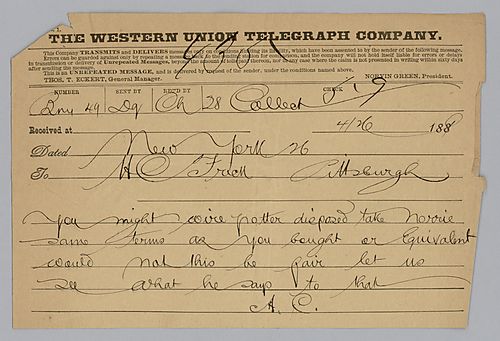 THE WESTERN UNION TELEGRAPH COMPANY.
This Company TRANSMITS and DELIVERS messages only on conditions limiting its liability, which have been assented to by the sender of the following message.
Errors can be guarded against only by repeating a message back to the sending station for comparison, and the company will not hold itself liable for errors or delays
in transmission or delivery of Unrepeated Messages, beyond the amount of tolls paid thereon, nor in any case where the claim is not presented in writing within sixty days
after sending the message.
This is an UNREPEATED MESSAGE, and is delivered by request of the sender, under the conditions named above.
THOS. T. ECKERT, General Manager. NORVIN GREEN, President.
NUMBER SENT BY REC'D BY CHECK
49 Dg Ch 28 Collect
Received at 4/26 188
Dated New York 26
To H C Frick Pittsburgh
You might wire Potter disposed take Norrie
same terms as you bought or Equivalent
would not this be fair let us
see what he says to that
A. C.